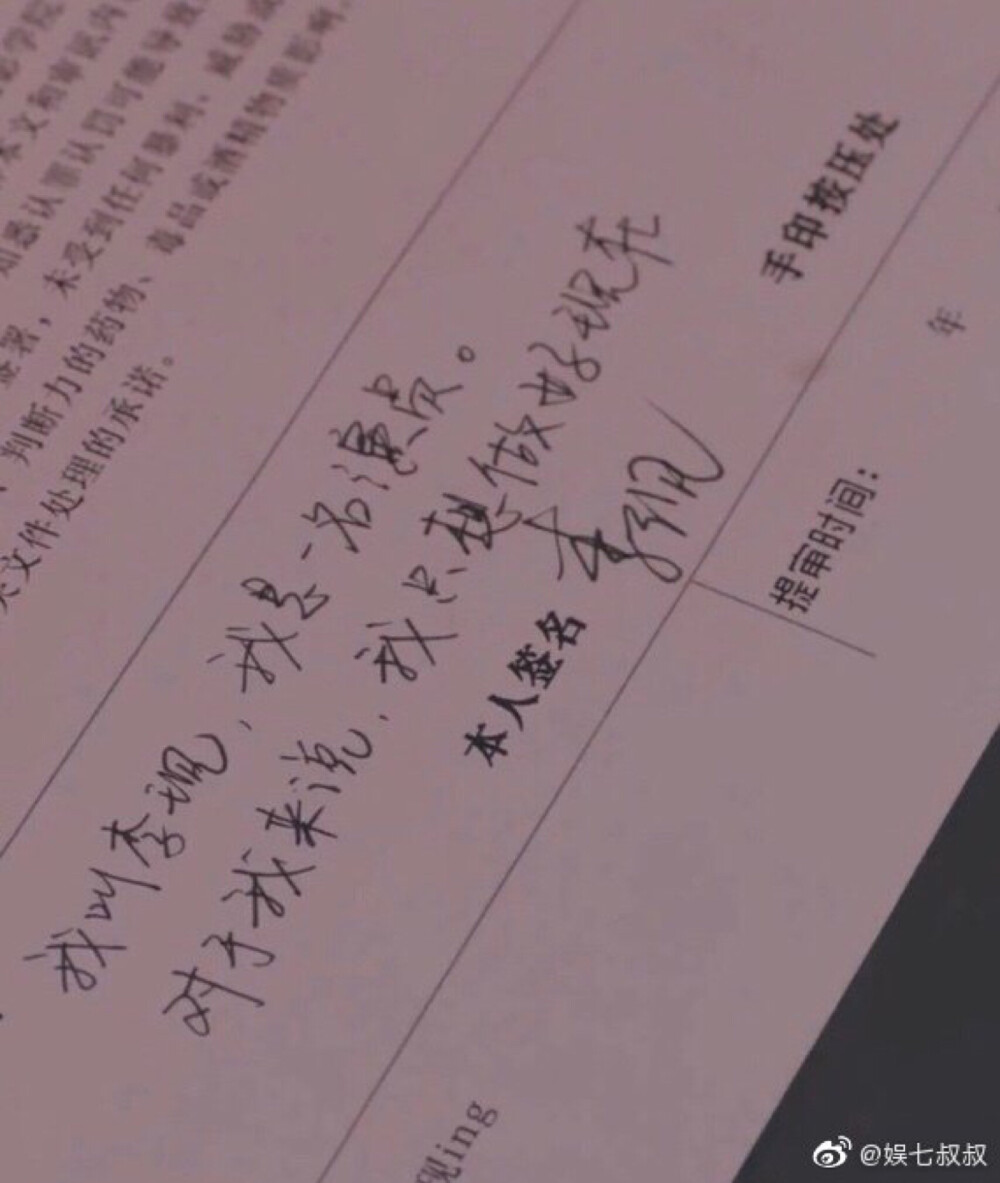 影学院
本文和审讯内
知悉认罪认罚可能导致
签署，未受到任何暴利、威胁或
判断力的药物、毒品或酒精物质影响。
关文件处理的承诺。
我叫李现，我是一名演员。
对于我来说，我只想做好现在
本人签名 李现
手印按压处
提审时间：
年
现ing
@娱七叔叔